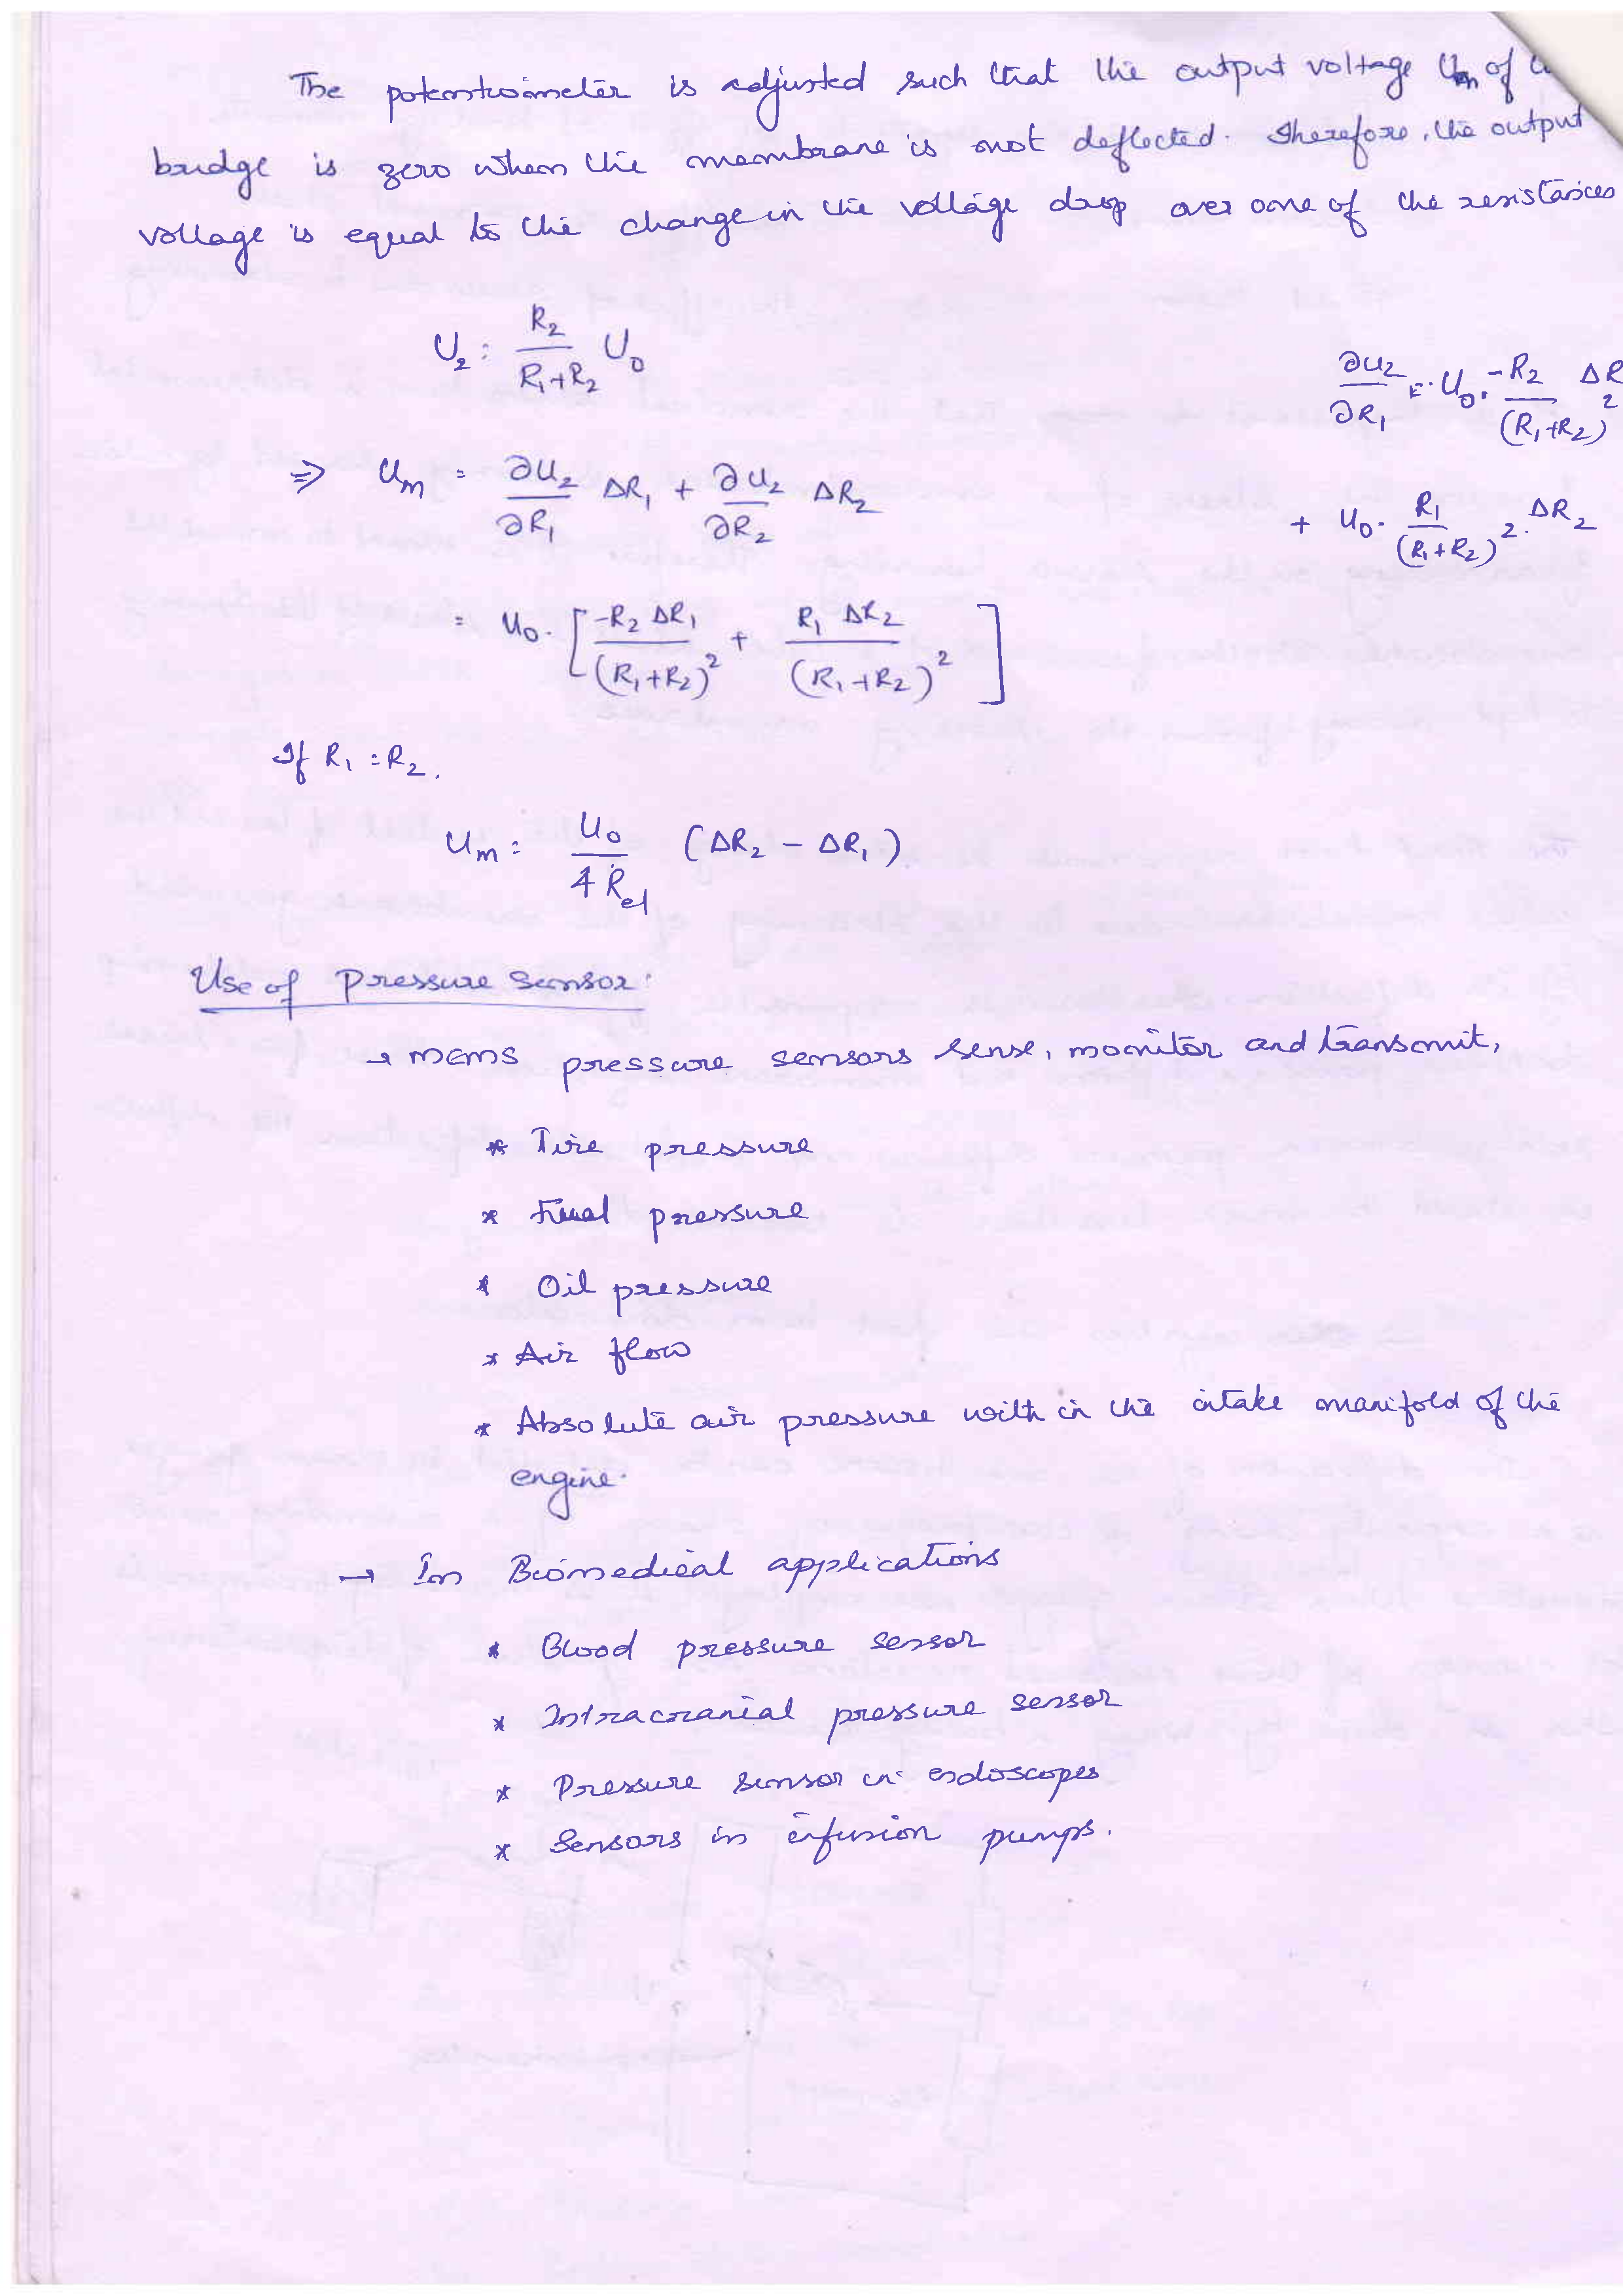 The potentiometer is adjusted such that the output voltage Um of
bridge is zero when the membrane is not deflected. Therefore, the output
voltage is equal to the change in the voltage drop over one of the resistances
U₂ : R₂/(R₁+R₂) U₀
∂U₂/∂R₁ = U₀ . -R₂/(R₁+R₂)² ΔR
⇒ Um = ∂U₂/∂R₁ ΔR₁ + ∂U₂/∂R₂ ΔR₂
+ U₀ . R₁/(R₁+R₂)² . ΔR₂
= U₀ . [ -R₂ ΔR₁/(R₁+R₂)² + R₁ ΔR₂/(R₁+R₂)² ]
If R₁ = R₂.
Um = U₀/4 Rel (ΔR₂ - ΔR₁)
Use of Pressure Sensor:
→ MEMS pressure sensors sense, monitor and transmit,
* Tire pressure
* Fuel pressure
* Oil pressure
* Air flow
* Absolute air pressure with in the intake manifold of the
engine.
→ In Biomedical applications
* Blood pressure sensor
* Intracranial pressure sensor
* Pressure sensor in endoscopes
* Sensors in infusion pumps.